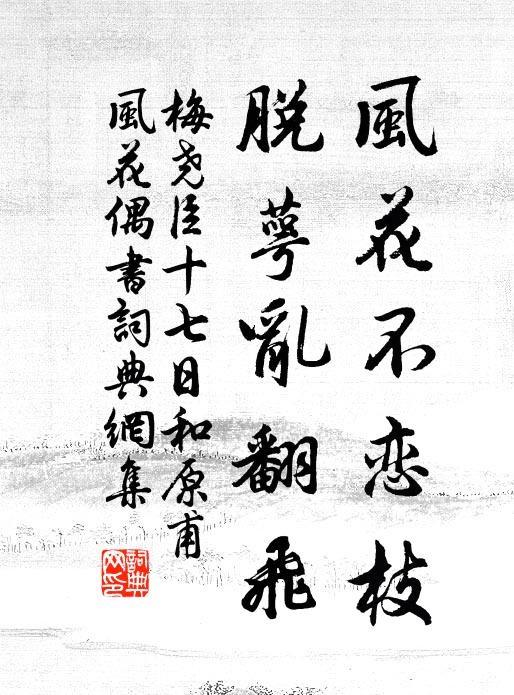 風花不恋枝
脫萼亂翻飛
梅堯臣十七日和原甫
風花偶書詞典網集
詞典网印